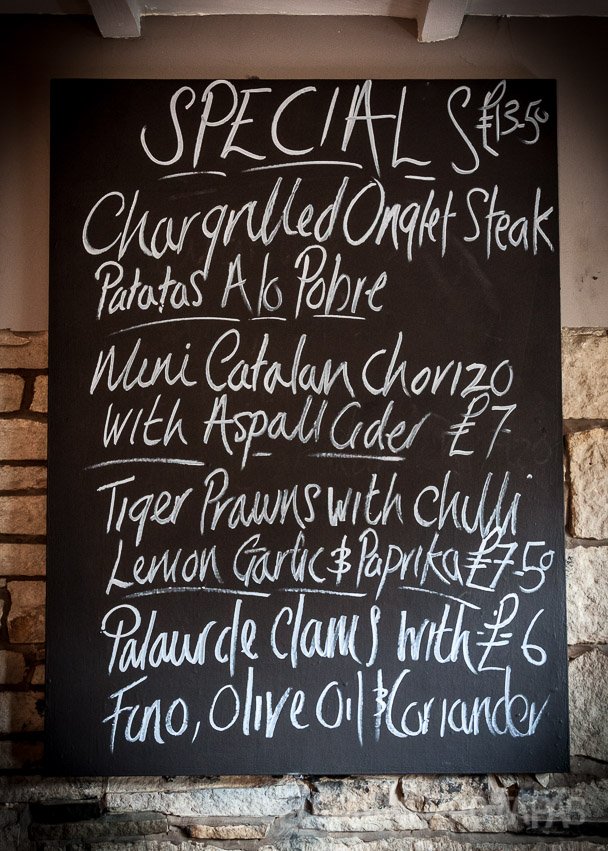 SPECIALS £13.50
Chargrilled Onglet Steak
Patatas A lo Pobre
Mini Catalan Chorizo
With Aspall Cider £7
Tiger Prawns with chilli
Lemon Garlic & Paprika £7.50
Palaurde clams with £6
Fino, Olive Oil & Coriander